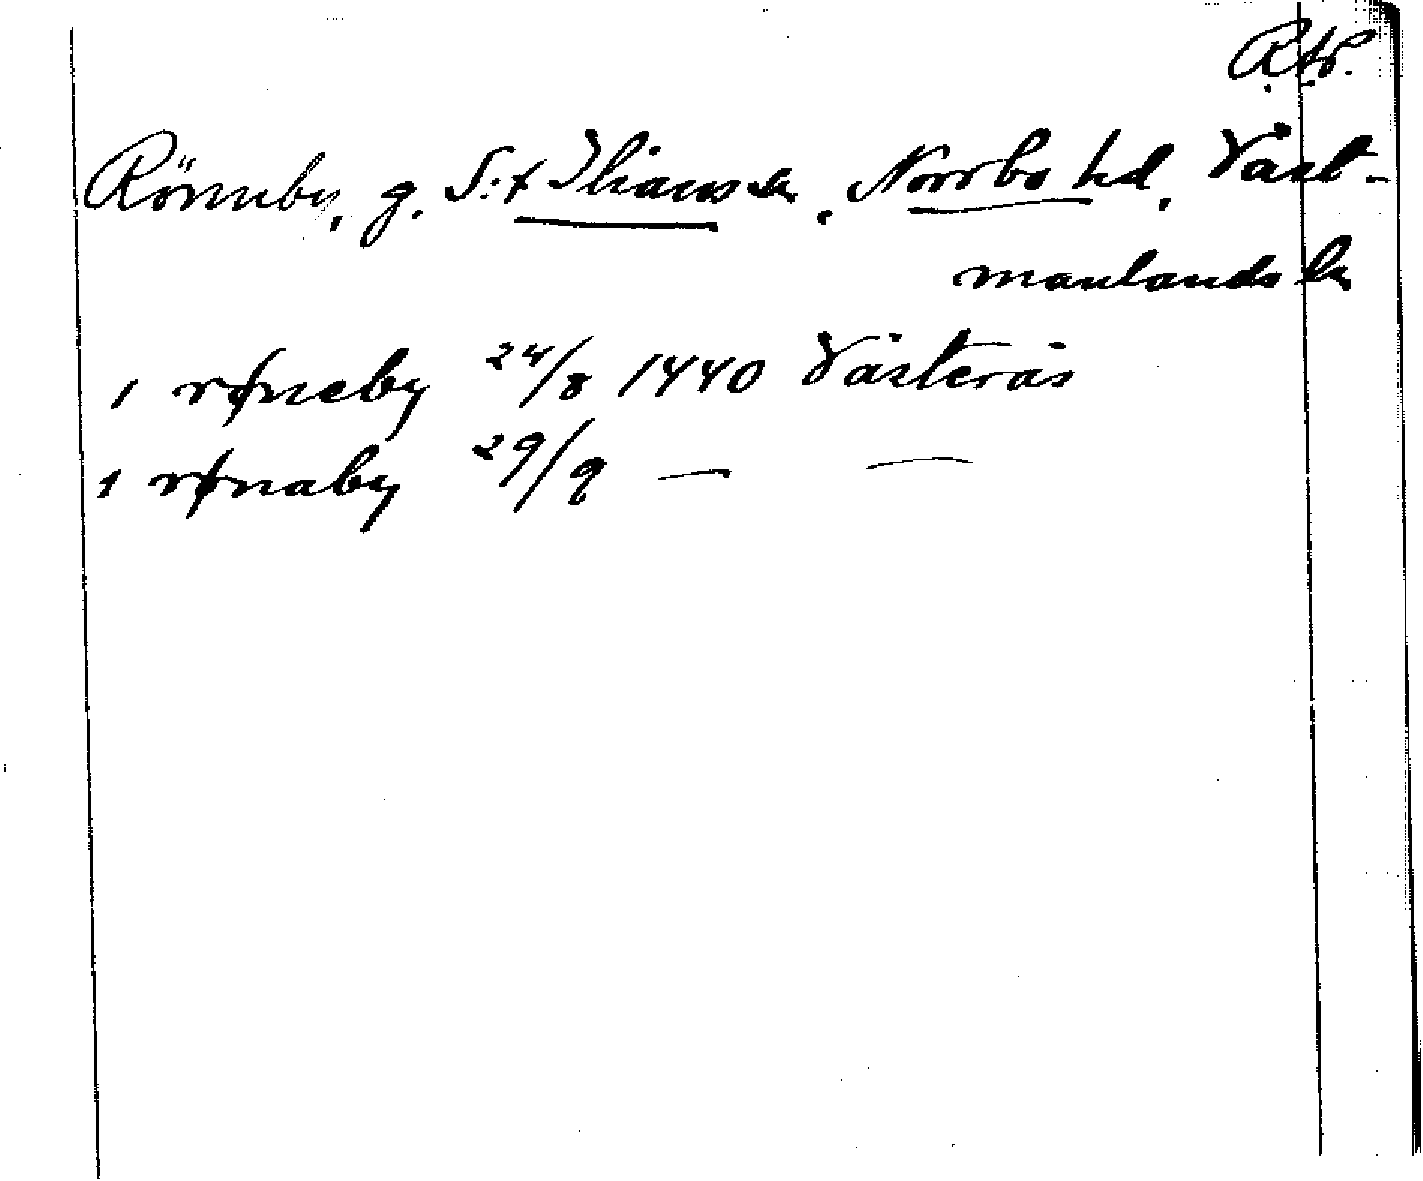 Rönneby, g. S:t Ilians sn, Norrbo hd, Väst-
manlands ln
1 røneby 24/8 1440 Västerås
1 rønaby 29/9 — —